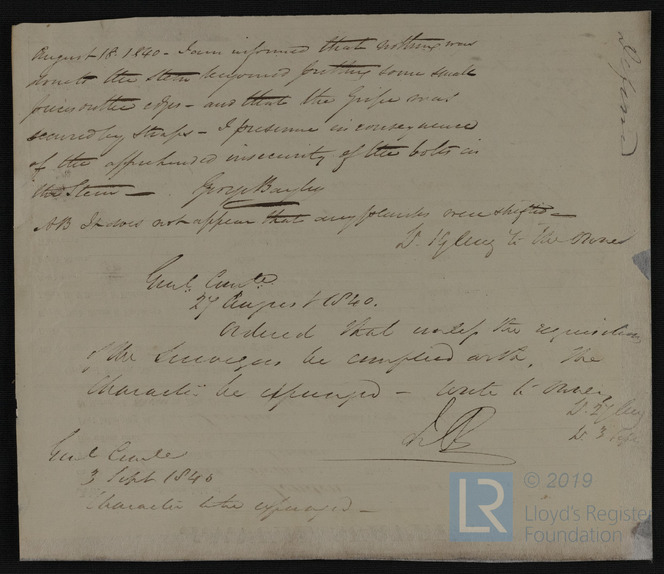 August 18. 1840 - I am informed that nothing was
done to the Stem beyond putting some small
pieces on the edges - and that the Gripe was
secured by straps - I presume in consequence
of the apprehended insecurity of the bolts in
the Stem - George Bayley
NB It does not appear that any planks were shifted -
Lr. 19 Aug to the Owner
Genl. Comtee.
27 August 1840.
Ordered that unless the requisitions
of the Surveyors be complied with, the
Character be expunged - write to Owner
Lr. 27 Aug
Lr. 3 Sept
Genl Comtee
3 Sept 1840
Character to be expunged -
© 2019
LR
Lloyd's Register
Foundation